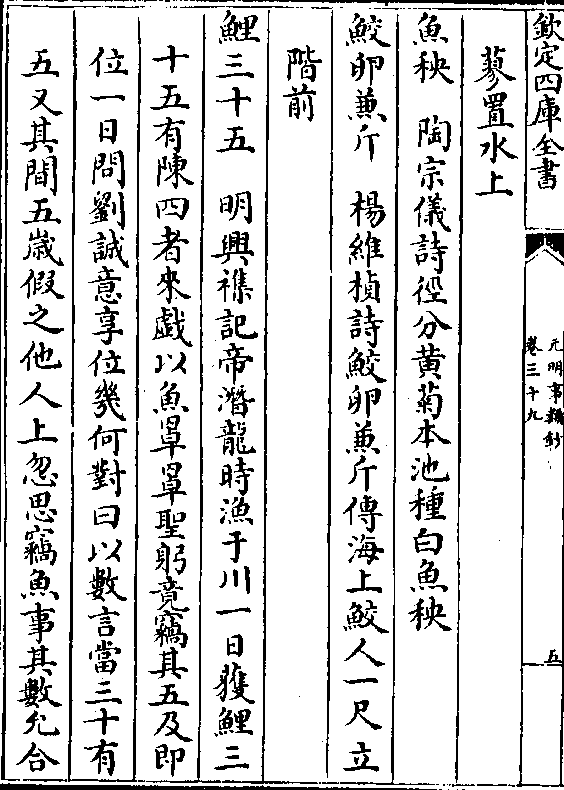 欽定四庫全書
元明事類鈔
卷三十九
五
蓼置水上
魚秧　陶宗儀詩徑分黄菊本池種白魚秧
鮫卵兼斤　楊維楨詩鮫卵兼斤傳海上鮫人一尺立
階前
鯉三十五　明興襍記帝潛龍時漁于川一日獲鯉三
十五有陳四者來戲以魚罩罩聖躬竟竊其五及即
位一日問劉誠意享位幾何對曰以數言當三十有
五又其間五歲假之他人上忽思竊魚事其數允合